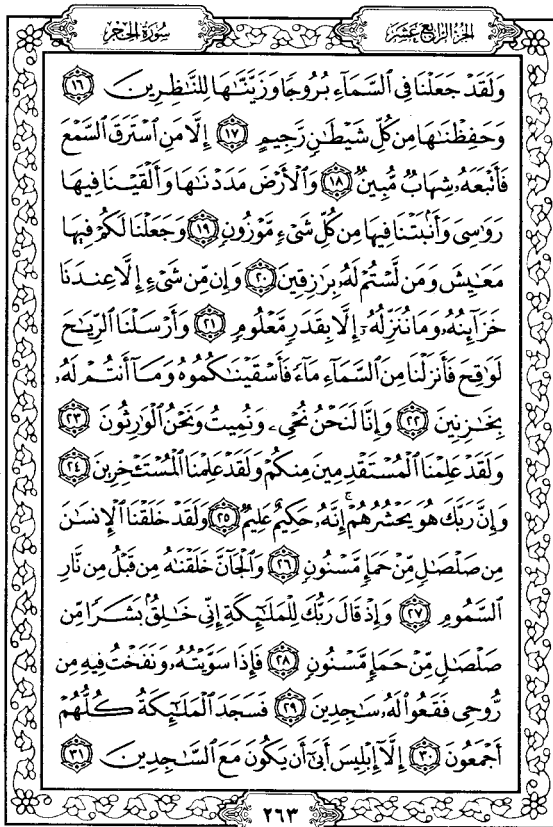 الجزء الرابع عشر
سورة الحجر
وَلَقَدْ جَعَلْنَا فِى ٱلسَّمَآءِ بُرُوجًا وَزَيَّنَّٰهَا لِلنَّٰظِرِينَ ١٦
وَحَفِظْنَٰهَا مِن كُلِّ شَيْطَٰنٍ رَّجِيمٍ ١٧ إِلَّا مَنِ ٱسْتَرَقَ ٱلسَّمْعَ
فَأَتْبَعَهُۥ شِهَابٌ مُّبِينٌ ١٨ وَٱلْأَرْضَ مَدَدْنَٰهَا وَأَلْقَيْنَا فِيهَا
رَوَٰسِىَ وَأَنۢبَتْنَا فِيهَا مِن كُلِّ شَىْءٍ مَّوْزُونٍ ١٩ وَجَعَلْنَا لَكُمْ فِيهَا
مَعَٰيِشَ وَمَن لَّسْتُمْ لَهُۥ بِرَٰزِقِينَ ٢٠ وَإِن مِّن شَىْءٍ إِلَّا عِندَنَا
خَزَآئِنُهُۥ وَمَا نُنَزِّلُهُۥٓ إِلَّا بِقَدَرٍ مَّعْلُومٍ ٢١ وَأَرْسَلْنَا ٱلرِّيَٰحَ
لَوَٰقِحَ فَأَنزَلْنَا مِنَ ٱلسَّمَآءِ مَآءً فَأَسْقَيْنَٰكُمُوهُ وَمَآ أَنتُمْ لَهُۥ
بِخَٰزِنِينَ ٢٢ وَإِنَّا لَنَحْنُ نُحْىِۦ وَنُمِيتُ وَنَحْنُ ٱلْوَٰرِثُونَ ٢٣
وَلَقَدْ عَلِمْنَا ٱلْمُسْتَقْدِمِينَ مِنكُمْ وَلَقَدْ عَلِمْنَا ٱلْمُسْتَـْٔخِرِينَ ٢٤
وَإِنَّ رَبَّكَ هُوَ يَحْشُرُهُمْ ۚ إِنَّهُۥ حَكِيمٌ عَلِيمٌ ٢٥ وَلَقَدْ خَلَقْنَا ٱلْإِنسَٰنَ
مِن صَلْصَٰلٍ مِّنْ حَمَإٍ مَّسْنُونٍ ٢٦ وَٱلْجَآنَّ خَلَقْنَٰهُ مِن قَبْلُ مِن نَّارِ
ٱلسَّمُومِ ٢٧ وَإِذْ قَالَ رَبُّكَ لِلْمَلَٰٓئِكَةِ إِنِّى خَٰلِقٌۢ بَشَرًا مِّن
صَلْصَٰلٍ مِّنْ حَمَإٍ مَّسْنُونٍ ٢٨ فَإِذَا سَوَّيْتُهُۥ وَنَفَخْتُ فِيهِ مِن
رُّوحِى فَقَعُوا۟ لَهُۥ سَٰجِدِينَ ٢٩ فَسَجَدَ ٱلْمَلَٰٓئِكَةُ كُلُّهُمْ
أَجْمَعُونَ ٣٠ إِلَّآ إِبْلِيسَ أَبَىٰٓ أَن يَكُونَ مَعَ ٱلسَّٰجِدِينَ ٣١
٢٦٣